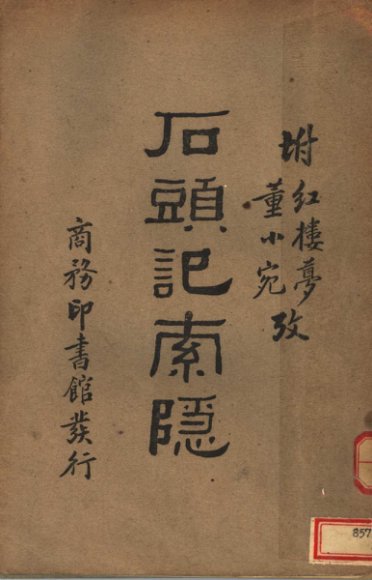 坿红樓夢
董小宛攷
石頭記索隱
商務印書館發行
857